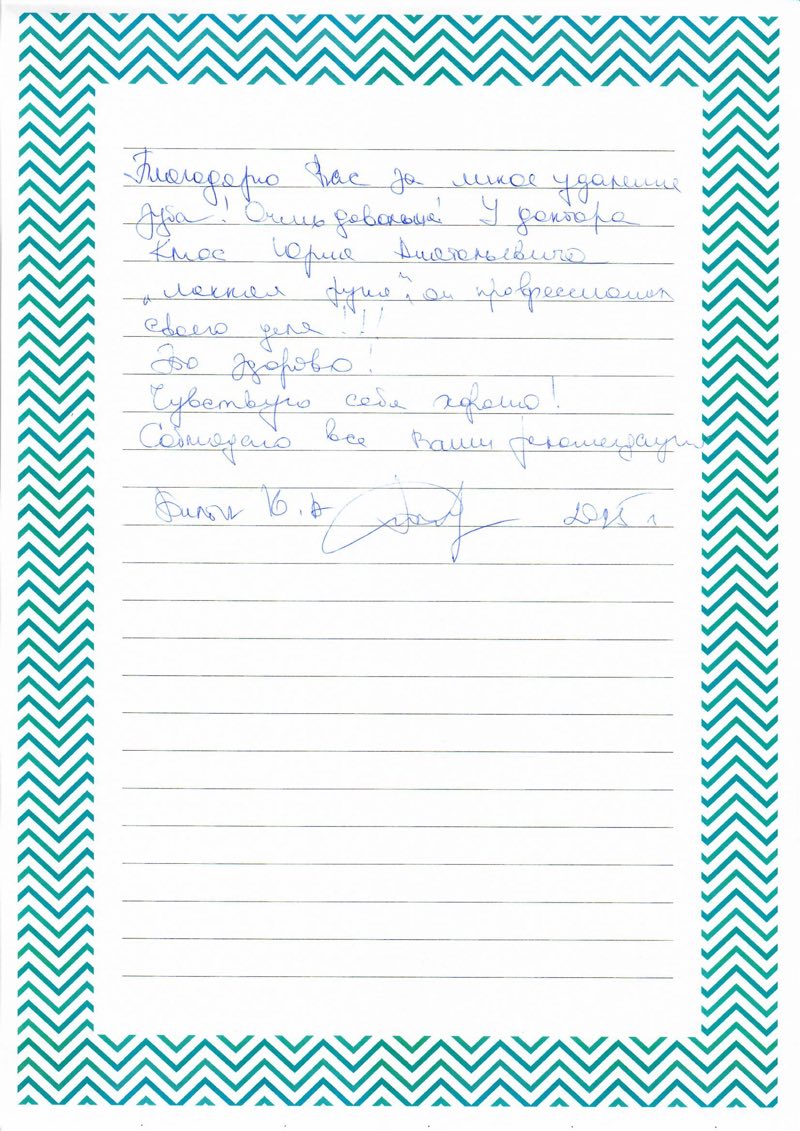 Благодарю Вас за легкое удаление
зуба! Очень довольна! У доктора
Клюс Юрия Анатольевича
„легкая рука", он профессионал
своего дела!!!
Это здорово!
Чувствую себя хорошо!
Соблюдаю все Ваши рекомендации
2015 г